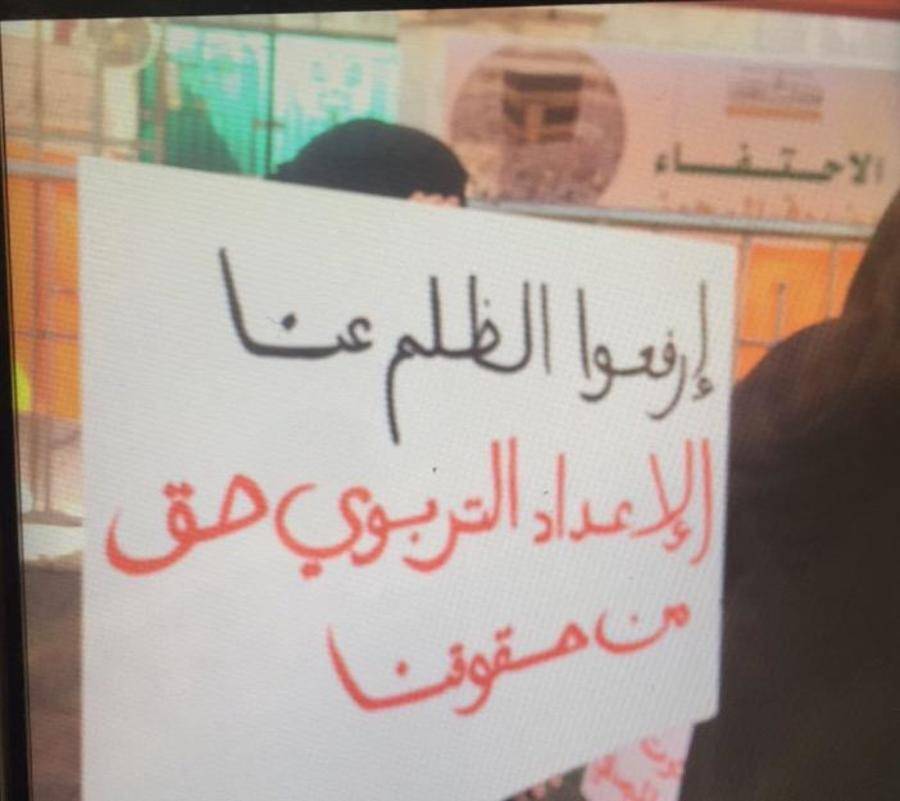 الاحتفاء
إرفعوا الظلم عنا
الإعداد التربوي حق
من حقوقنا